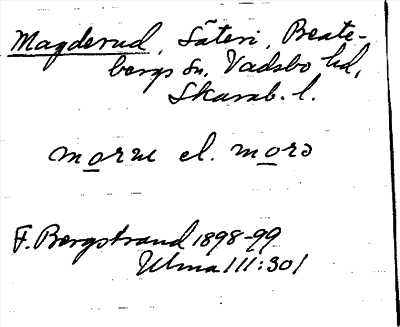 Magderud, Säteri, Beate-
bergs sn, Vadsbo hd,
Skarab. l.
morne el. mors
F. Bergstrand 1898-99
Ulma 111:301